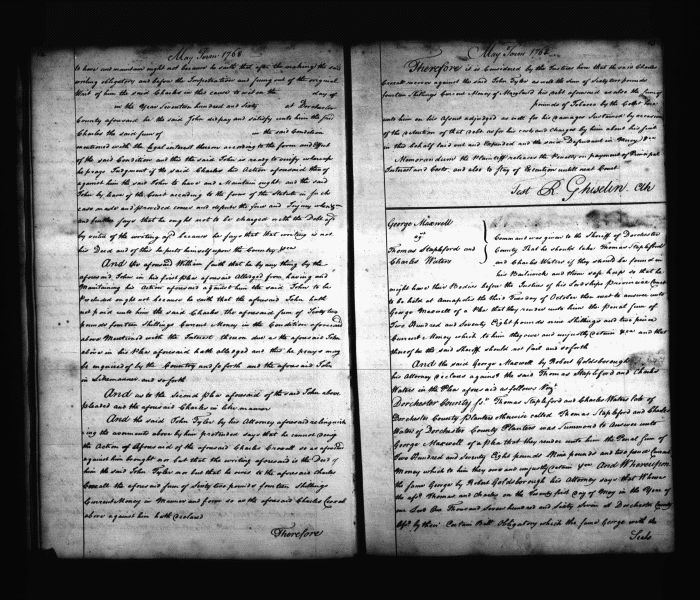 May Term 1768
to have and maintain ought not because he saith that after the making the said
writing obligatory and before the Impetration and suing out of the original
Writ of him the said Charles in this cause to wit on the day of
in the Year Seventeen hundred and sixty at Dorchester
County aforesaid he the said John did pay and satisfy unto him the said
Charles the said sum of in the said Condition
mentioned with the legal interest thereon according to the form and Effect
of the said Condition and this the said John is ready to verify whereof
he prays Judgment if the said Charles his Action aforesaid thereof
against him the said John to have and Maintain ought and the said
John by leave of the Court according to the form of the Statute in such
case made and provided comes and defends the force and Injury when &c
and further says that he ought not to be charged with the Debt afd
by virtue of the writing afd because he says that writing is not
his Deed and of this he puts himself upon the Country &c
And the aforesaid William saith that he by any thing by the
aforesaid John in his first plea aforesaid Alledged from having and
Maintaining his Action aforesaid against him the said John to be
Precluded ought not because he saith that the aforesaid John hath
not paid unto him the said Charles the aforesaid sum of Sixty two
pounds fourteen Shillings Current Money in the Condition aforesaid
above Mentioned with the Interest thereon due as the aforesaid John
above in his Plea aforesaid hath alledged and this he prays may
be enquired of by the Country and so forth and the aforesaid John
in like manner and so forth
And as to the Second plea aforesaid of the said John above
pleaded and the aforesaid Charles in like manner
And the said John Tyler by his Attorney aforesaid relinquish
ing the averments above by him pretended says that he cannot deny
the Action of aforesaid of the aforesaid Charles Crosall so as aforesaid
against him brought nor but that the writing aforesaid is the Deed of
him the said John Tyler nor but that he owes to the aforesaid Charles
Crosall the aforesaid sum of Sixty two pounds fourteen Shillings
Current Money in Manner and form so as the aforesaid Charles Crosall
above against him hath declared
Therefore
May Term 1768
Therefore it is considered by the Justices here that the said Charles
Crosall recover against the said John Tyler as well the sum of Sixty two pounds
fourteen Shillings Current Money of Maryland his debt aforesaid as also the sum of
pounds of Tobacco by the Court here
unto him on his Assent adjudged as well for his Damages Sustained by occasion
of the detention of that debt as for his costs and charges by him about his suit
in this behalf laid out and Expended and the said Defendant in Mercy &c
Memorandum the Plaintiff releases the Penalty on payment of Principal
Interest and Costs and also to stay of Execution untill next Court
Test R. Ghiselin Clk
George Maxwell
agt
Thomas Stapleford and
Charles Waters
Command was given to the Sheriff of Dorchester
County That he should take Thomas Stapleford
and Charles Waters if they should be found in
his Bailiwick and them safe keep so that he
might have their Bodies before the Justices of his Lordships Provincial Court
to be held at Annapolis the third Tuesday of October then next to answer unto
George Maxwell of a Plea that they render unto him the Penal sum of
Two Hundred and Seventy Eight pounds nine Shillings and two pence
Current Money which to him they owe and unjustly Detain &c and that
thereof he the said Sheriff should not fail and so forth
And the said George Maxwell by Robert Goldsborough
his Attorney declares against the said Thomas Stapleford and Charles
Waters in the Plea aforesaid as follows Viz
Dorchester County Sc. Thomas Stapleford and Charles Waters late of
Dorchester County Planters otherwise called Thomas Stapleford and Charles
Waters of Dorchester County Planters was Summoned to Answer unto
George Maxwell of a plea that they render unto him the Penal sum of
Two Hundred and Seventy Eight pounds Nine pounds and two pence Current
Money which to him they owe and unjustly Detain &c And Whereupon
the said George by Robert Goldsborough his Attorney says that Whereas
the afsd Thomas and Charles on the Twenty first day of May in the Year of
our Lord One Thousand Seven hundred and Sixty Seven at Dorchester County
afsd by their Certain Bill Obligatory which the said George with the
Seals